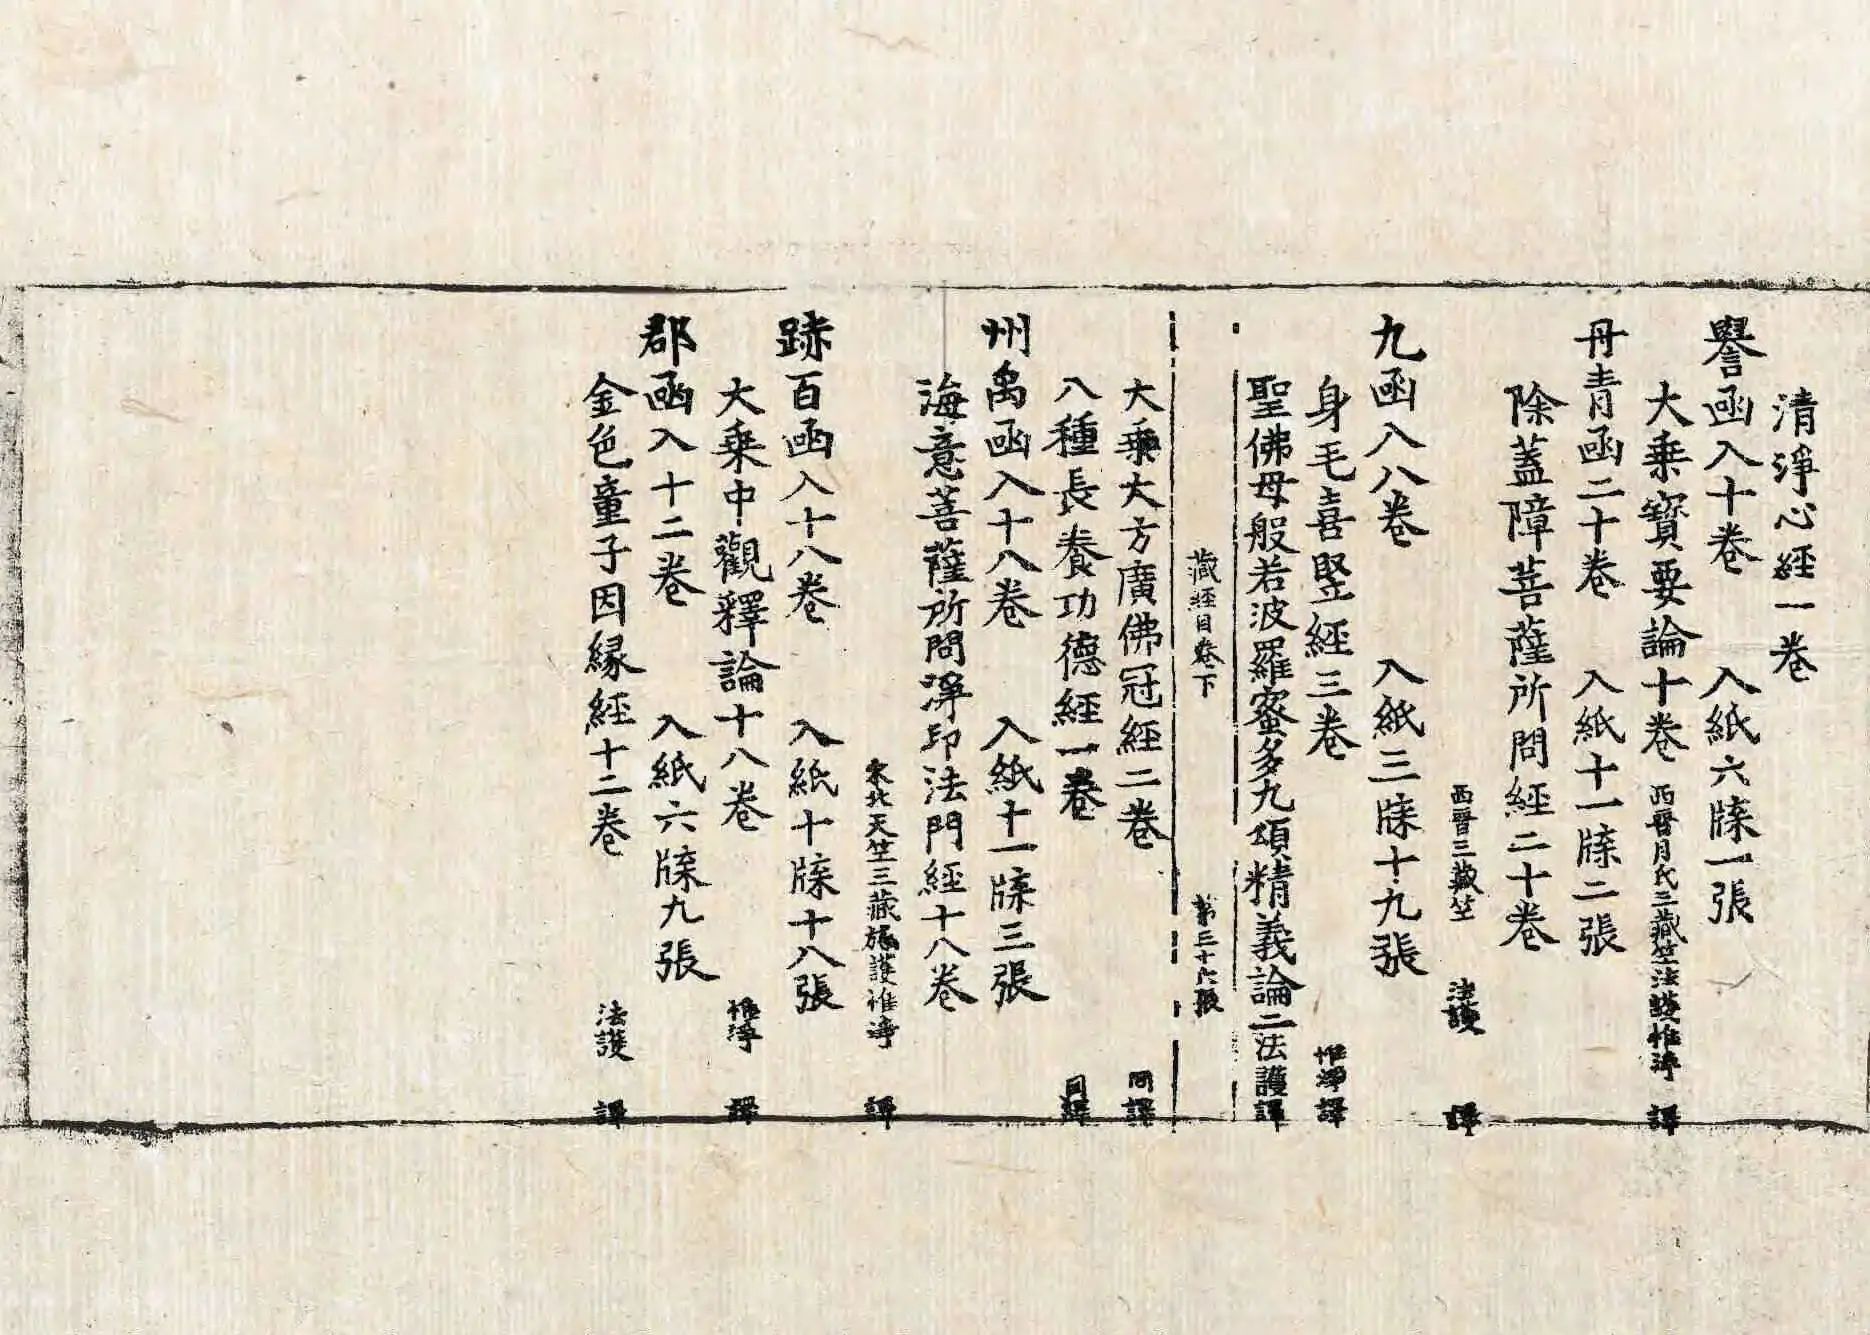 清淨心經一卷
譽函入十卷 入紙六牒一張
大乗寳要論十卷 西晉月氏三藏竺法護惟淨 譯
丹青函二十卷 入紙十一牒二張
除蓋障菩薩所問經二十卷
西晉三藏竺 法護 譯
九函入八卷 入紙三牒十九張
身毛喜竪經三卷 惟淨 譯
聖佛母般若波羅蜜多九頌精義論二法護譯
藏經目卷下 第三十六張
大乗大方廣佛冠經二卷 同譯
八種長養功德經一卷 同譯
州禹函入十八卷 入紙十一牒三張
海意菩薩所問淨印法門經十八卷
宋北天竺三藏施護惟淨 譯
跡百函入十八卷 入紙十牒十八張
大乗中觀釋論十八卷 惟淨 譯
郡函入十二卷 入紙六牒九張
金色童子因緣經十二卷 法護 譯